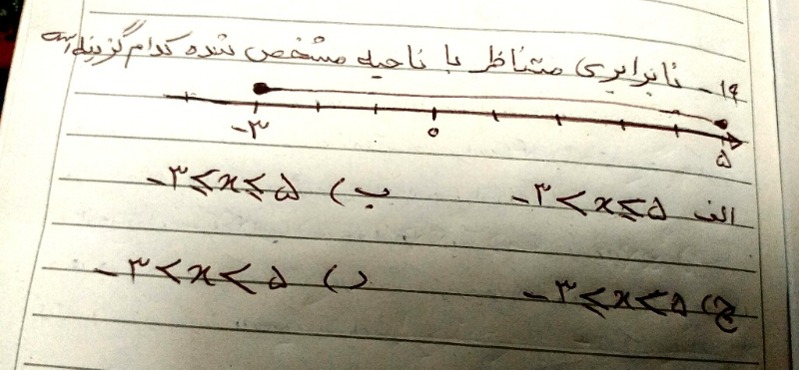 ۱۶- نابرابری متناظر با ناحیه مشخص شده کدام گزینه است
-۳ ۰ ۵
الف -۳<x≤۵ ب) -۳≤x≤۵
ج) -۳≤x<۵ د) -۳<x<۵